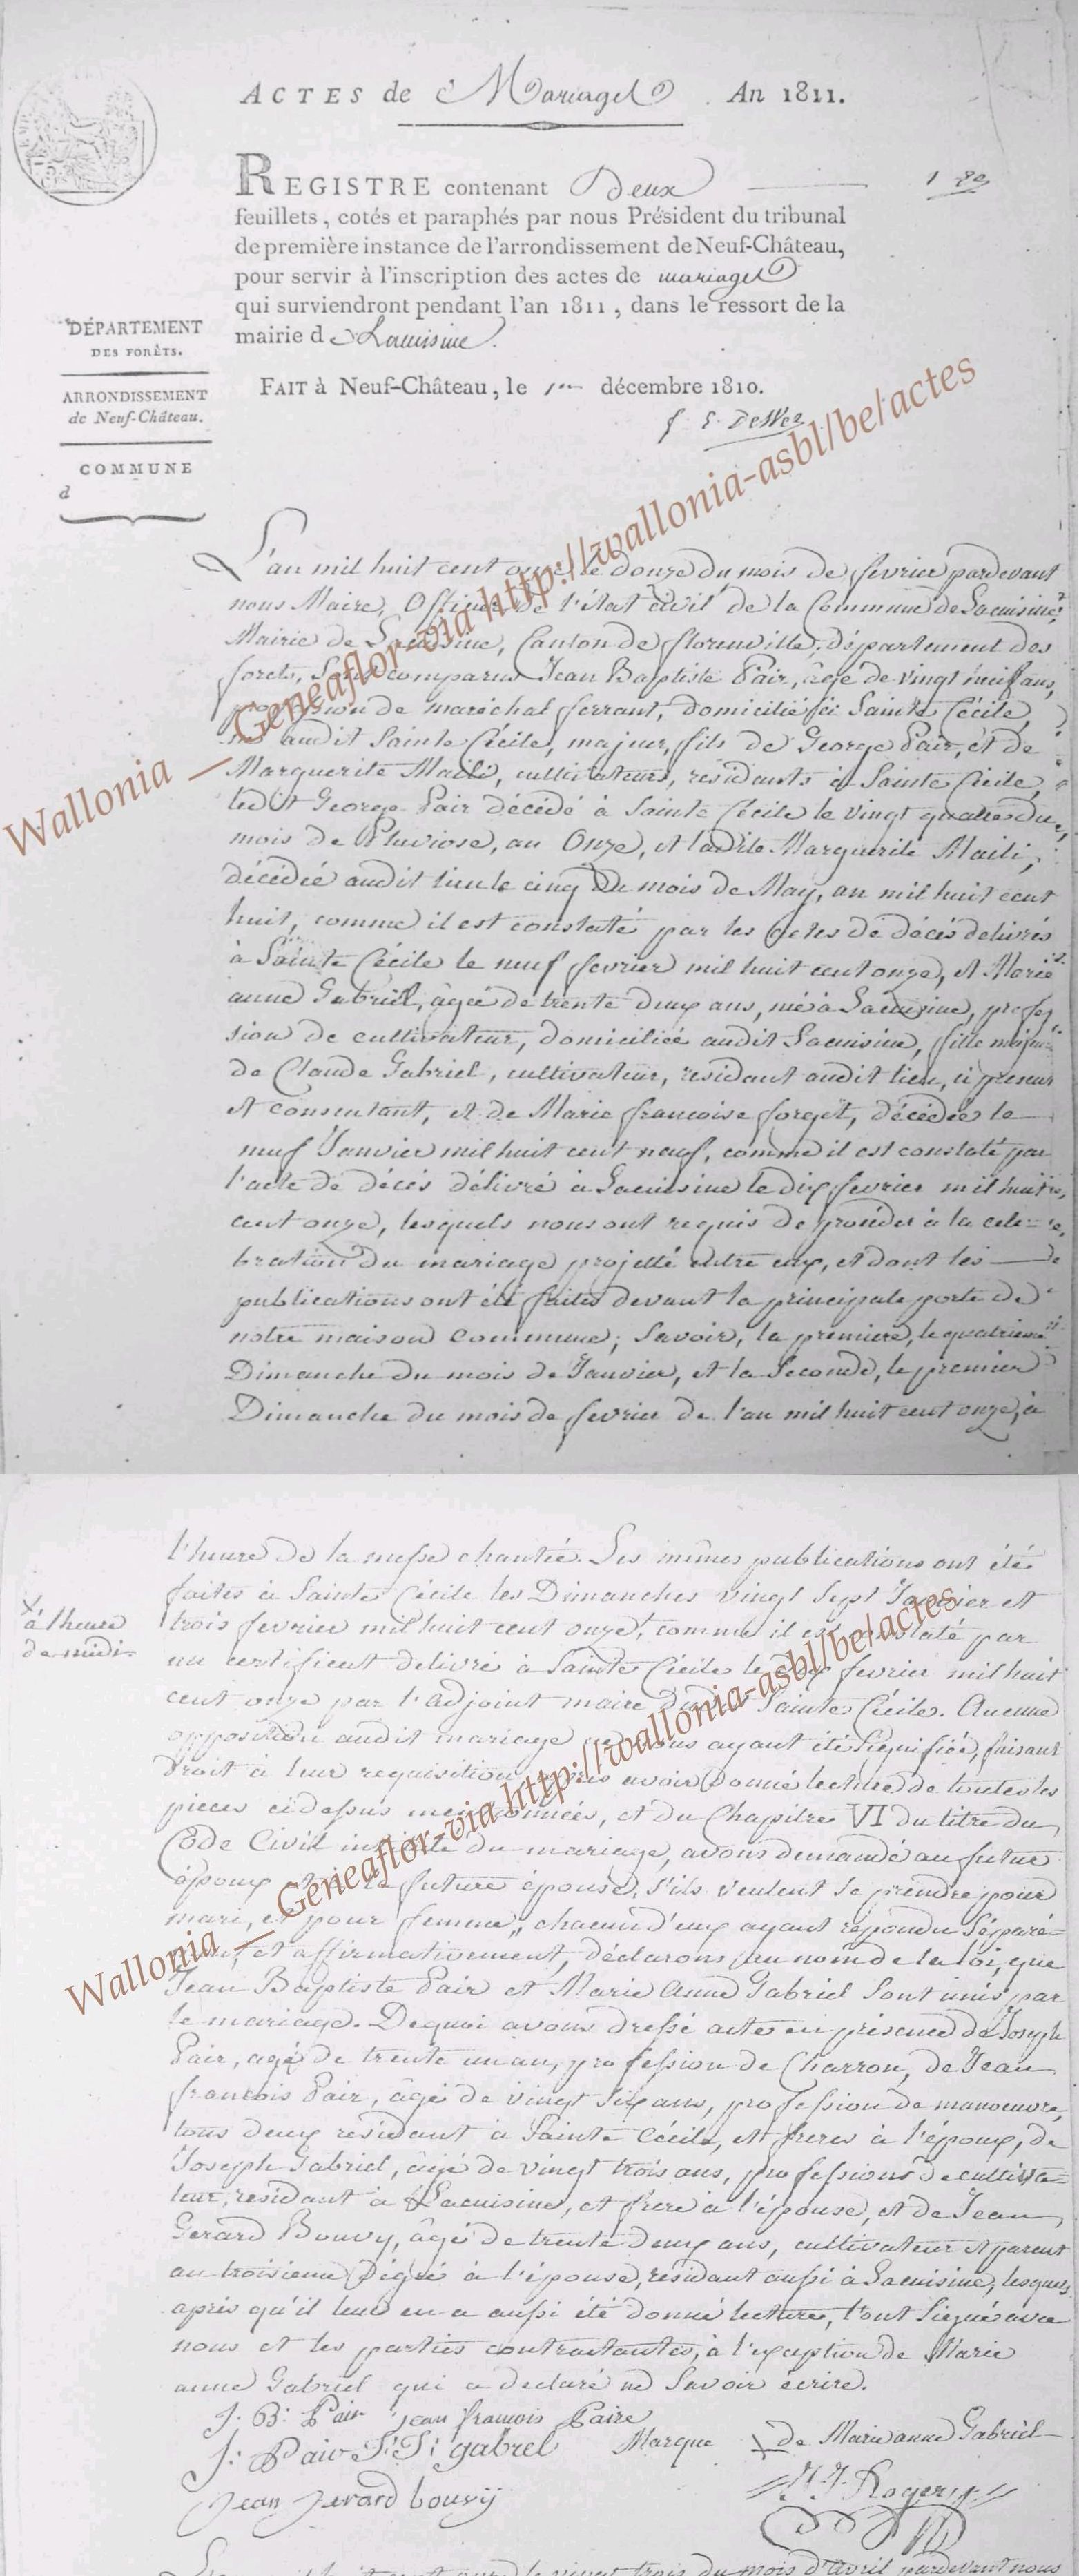 ACTES de Mariages. An 1811.
REGISTRE contenant Deux
feuillets, cotés et paraphés par nous Président du tribunal
de première instance de l'arrondissement de Neuf-Château,
pour servir à l'inscription des actes de mariages
qui surviendront pendant l'an 1811, dans le ressort de la
mairie de Lacuisine.
FAIT à Neuf-Château, le 1er décembre 1810.
DÉPARTEMENT
DES FORÊTS.
ARRONDISSEMENT
de Neuf-Château.
COMMUNE
d
L'an mil huit cent onze le douze du mois de fevrier pardevant
nous Maire, Officier de l'état civil de la Commune de Lacuisine,
Mairie de Lacuisine, Canton de florenville, département des
forets, sont comparus Jean Baptiste Pair, âgé de vingt neuf ans,
profession de maréchal ferrant, domicilié à Sainte Cécile,
né audit Sainte Cécile, majeur, fils de George Pair, et de
Marguerite Maili, cultivateurs, résidants à Sainte Cécile,
ledit George Pair décédé à Sainte Cécile le vingt quatre du
mois de Pluviose, an Onze, et ladite Marguerite Maili,
décédée audit lieu le cinq du mois de May, an mil huit cent
huit, comme il est constaté par les actes de décès delivrés
à Sainte Cécile le neuf fevrier mil huit cent onze, et Marie
anne Gabriel, âgée de trente deux ans, née à Lacuisine, profes
sion de cultivateur, domiciliée audit Lacuisine, fille majeure
de Claude Gabriel, cultivateur, residant audit lieu, ci présent
et consentant, et de Marie francoise forget, décédée le
neuf Janvier mil huit cent neuf, comme il est constaté par
l'acte de décès délivré à Lacuisine le dix fevrier mil huit
cent onze, lesquels nous ont requis de procéder à la cele=
bration du mariage projetté entre eux, et dont les
publications ont été faites devant la principale porte de
notre maison commune; Savoir, la premiere, le quatrieme
Dimanche du mois de Janvier, et la Seconde, le premier
Dimanche du mois de fevrier de l'an mil huit cent onze, à
l'heure de la messe chantée. Les mêmes publications ont été
faites à Sainte Cécile les Dimanches vingt Sept Janvier et
trois fevrier mil huit cent onze, comme il est constaté par
x
à l'heure
de midi.
un certificat delivré à Sainte Cécile le dix fevrier mil huit
cent onze par l'adjoint maire dudit Sainte Cécile. Aucune
opposition audit mariage ne nous ayant été Signifiée, faisant
droit à leur requisition, après avoir donné lecture de toutes les
pieces cidessus mentionnées, et du Chapitre VI du titre du
Code Civil intitulé du mariage, avons demandé au futur
époux et à la future épouse, s'ils veulent se prendre pour
mari, et pour femme, chacun d'eux ayant répondu Séparé=
ment, et affirmativement, déclarons au nom de la loi, que
Jean Baptiste Pair et Marie Anne Gabriel Sont unis par
le mariage. De quoi avons dressé acte en présence de Joseph
Pair, agé de trente un an, profession de Charron, de Jean
francois Pair, âgé de vingt six ans, profession de manoeuvre,
tous deux résidant à Sainte Cécile, et freres à l'époux, de
Joseph Gabriel, âgé de vingt trois ans, profession de cultiva=
teur, residant à Lacuisine, et frere à l'épouse, et de Jean
Gerard Bouvy, âgé de trente deux ans, cultivateur et parent
au troisieme Dégré à l'épouse, résidant aussi à Lacuisine, lesquels
après qu'il leur en a aussi été donné lecture, l'ont Signé avec
nous et les parties contractantes, à l'exception de Marie
anne Gabriel qui a declaré ne Savoir écrire.
J: B: Pair jean francois Paire
J: Pair J: J: gabrel Marque de Marie anne Gabriel
Jean Jerard bouvy Rogery
Wallonia – Geneaflor-via http://wallonia-asbl/be/actes
Wallonia – Geneaflor-via http://wallonia-asbl/be/actes